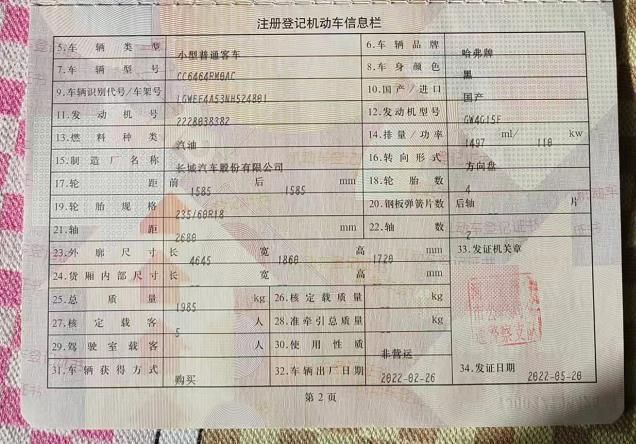 注册登记机动车信息栏
5.车辆类型 小型普通客车 6.车辆品牌 哈弗牌
7.车辆型号 CC6464RM0AC 8.车身颜色 黑
9.车辆识别代号/车架号 LGWEE4A53NH524801 10.国产/进口 国产
11.发动机号 2228038382 12.发动机型号 GW4G15F
13.燃料种类 汽油 14.排量/功率 1497 ml/ 110 kw
15.制造厂名称 长城汽车股份有限公司 16.转向形式 方向盘
17.轮距 前 1585 后 1585 mm 18.轮胎数 4
19.轮胎规格 235/60R18 20.钢板弹簧片数 后轴 片
21.轴距 2680 mm 22.轴数 2
23.外廓尺寸 长 4645 宽 1860 高 1720 mm 33.发证机关章
24.货厢内部尺寸 长 宽 高 mm
25.总质量 1985 kg 26.核定载质量 -- kg
27.核定载客 5 人 28.准牵引总质量 -- kg
29.驾驶室载客 人 30.使用性质 非营运
31.车辆获得方式 购买 32.车辆出厂日期 2022-02-26 34.发证日期 2022-05-20
第2页